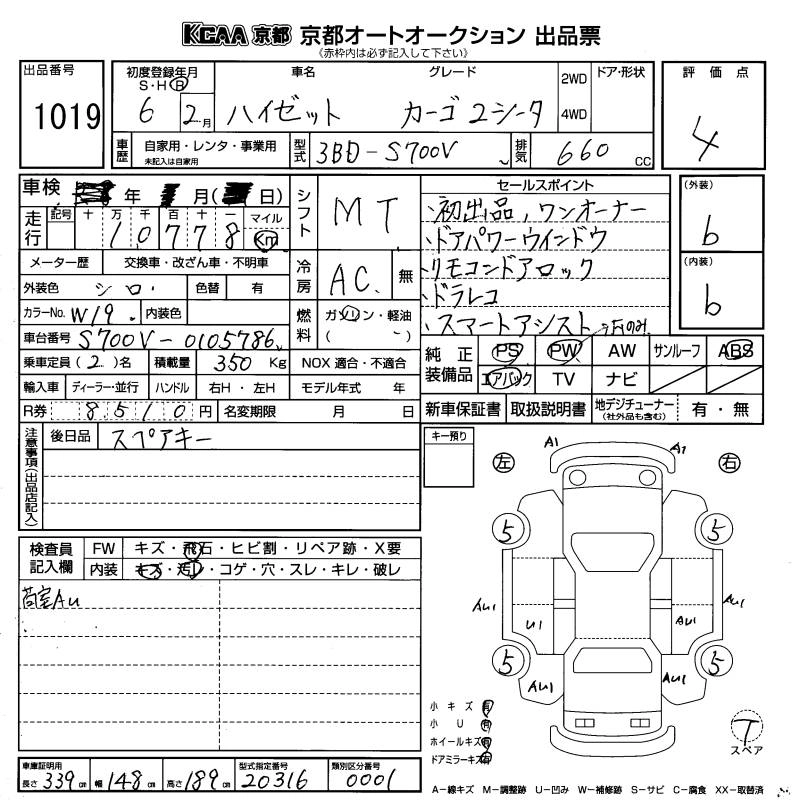 KCAA 京都 京都オートオークション 出品票
《赤枠内は必ず記入して下さい》
出品番号 1019
初度登録年月 S・H・R 6 2月
車名 ハイゼット
グレード カーゴ 2シータ
2WD 4WD
ドア・形状
評価点 4
車歴 自家用・レンタ・事業用
未記入は自家用
型式 3BD-S700V
排気 660 CC
車検 年 月( 日)
走行 記号 十 万 千 百 十 一 マイル Km
1 0 7 7 8
シフト MT
セールスポイント
・初出品, ワンオーナー
・ドアパワーウインドウ
・リモコンドアロック
・ドラレコ
・スマートアシスト
(外装) b
(内装) b
メーター歴 交換車・改ざん車・不明車
冷房 AC 無
外装色 シロ 色替 有
カラーNo. W19 内装色
燃料 ガソリン・軽油
( )
車台番号 S700V-0105786
乗車定員 (2)名 積載量 350 Kg NOX 適合・不適合
輸入車 ディーラー・並行 ハンドル 右H・左H モデル年式 年
R券 8510円 名変期限 月 日
純正装備品 PS PW AW サンルーフ ABS
エアバック TV ナビ
新車保証書 取扱説明書 地デジチューナー (社外品も含む) 有・無
注意事項(出品店記入)
後日品 スペアキー
キー預り
左 右
A1 A1
5 5
AU1 AU1
U1 AU1
5 5
AU1 AU1
検査員記入欄
FW キズ・飛石・ヒビ割・リペア跡・X要
内装 キズ・汚レ・コゲ・穴・スレ・キレ・破レ
荷室AU
小キズ 有
小U 有
ホイールキズ 有
ドアミラーキズ 有
T
スペア
車庫証明用 長さ 339cm 幅 148cm 高さ 189cm
型式指定番号 20316
類別区分番号 0001
A-線キズ M-調整跡 U-凹み W-補修跡 S-サビ C-腐食 XX-取替済